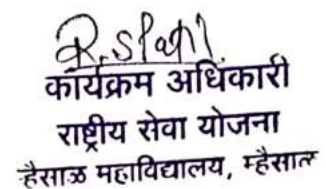 R.S Patil
कार्यक्रम अधिकारी
राष्ट्रीय सेवा योजना
हैसाळ महाविद्यालय, म्हैसाल